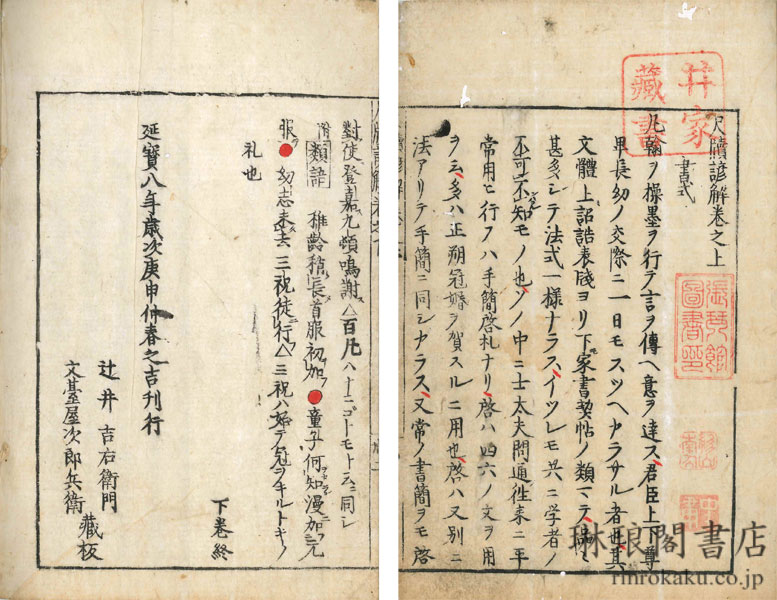 尺牘諺解巻之上
書式
凡翰ヲ操墨ヲ行テ言ヲ傳ヘ意ヲ達ス君臣上下尊
卑長幼ノ交際ニ一日モスツヘカラサル者也其
文體上詔誥表牋ヨリ下家書契帖ノ類マテ
甚多シテ法式一様ナラスイツレモ共ニ学者ノ
不可不知モノ也ソノ中ニ士太夫問通徃来ニ平
常用ヒ行フハ手簡啓札ナリ啓ハ四六ノ文ヲ用
ヲ云多ハ正朔冠婚ヲ賀スルニ用也啓ハ又別ニ
法アリテ手簡ニ同シカラス又常ノ書簡ヲモ啓
井家
藏書
圖書
對使登嘉九頓鳴謝△百凡ハ十ニゴトモト云ニ同シ
附類語 稚齢稍長首服初加●童子何知漫加元
服●幼志未去三祝徒行△三祝ハ始テ冠ヲキルトキノ
礼也
下巻終
延寳八年歳次庚申仲春之吉刊行
辻井吉右衛門
文臺屋次郎兵衛
藏板
琳琅閣書店
rinrokaku.co.jp